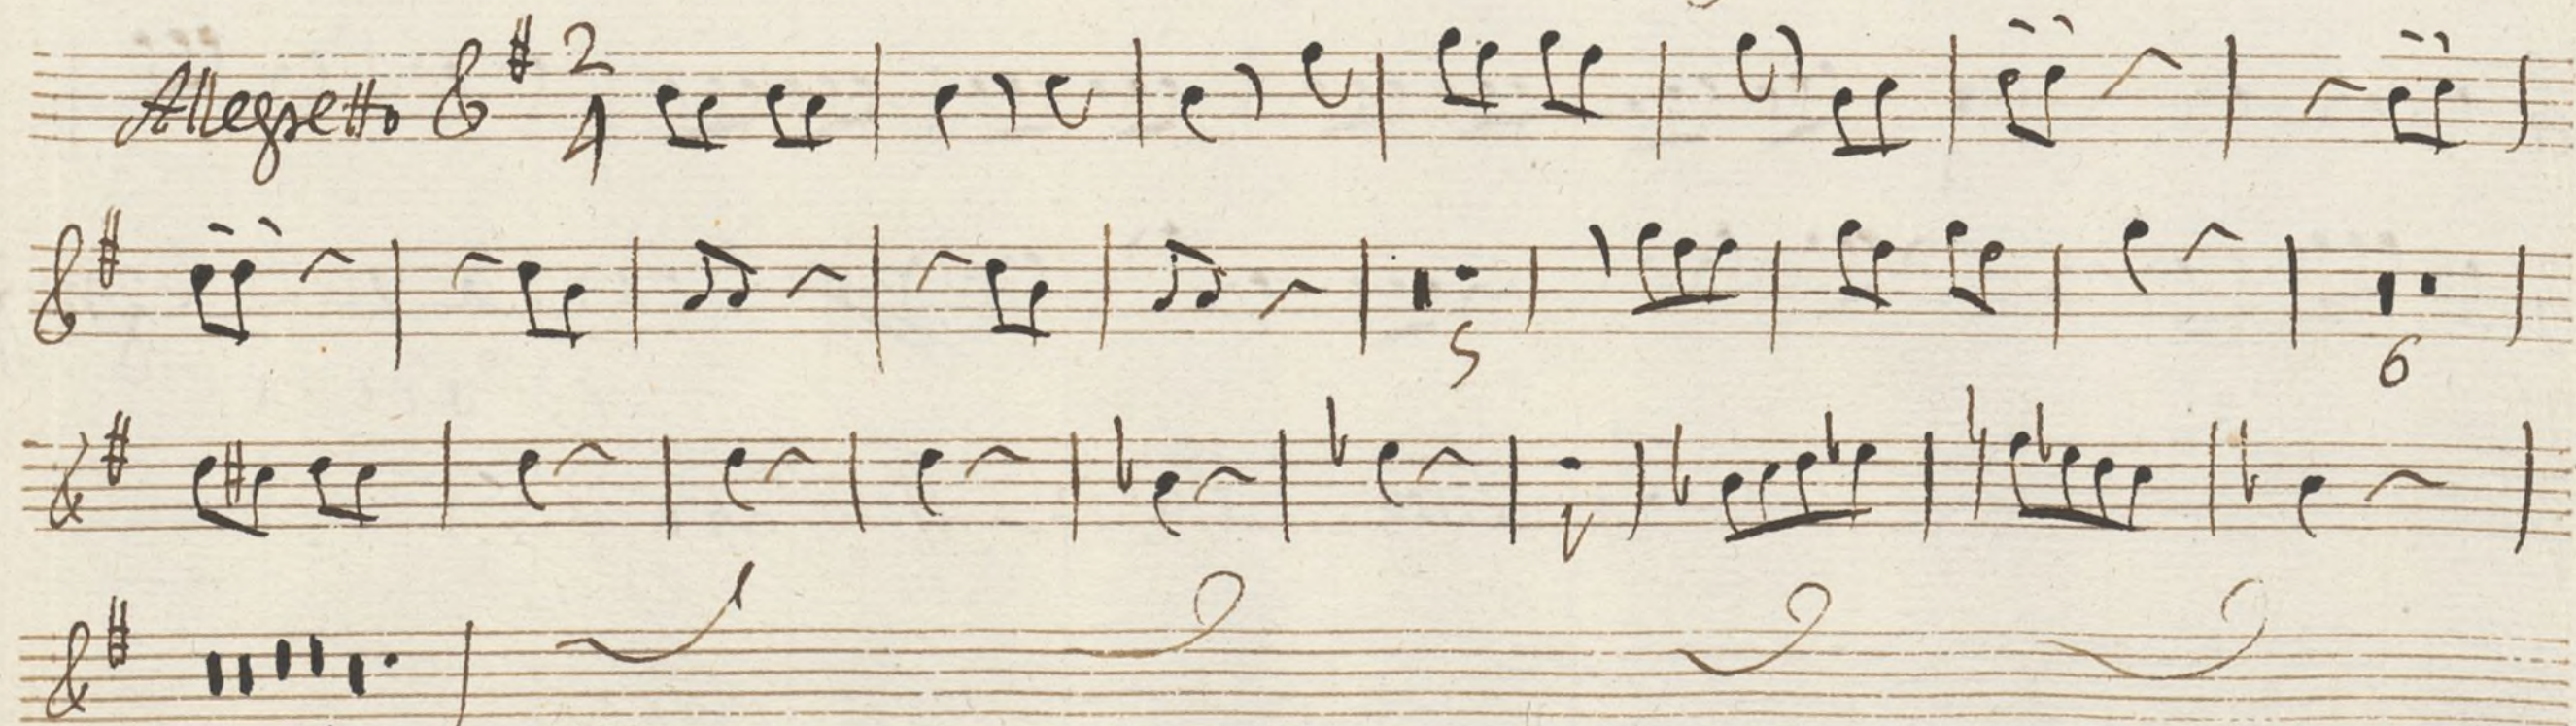 Allegretto 2/4
5 6
1